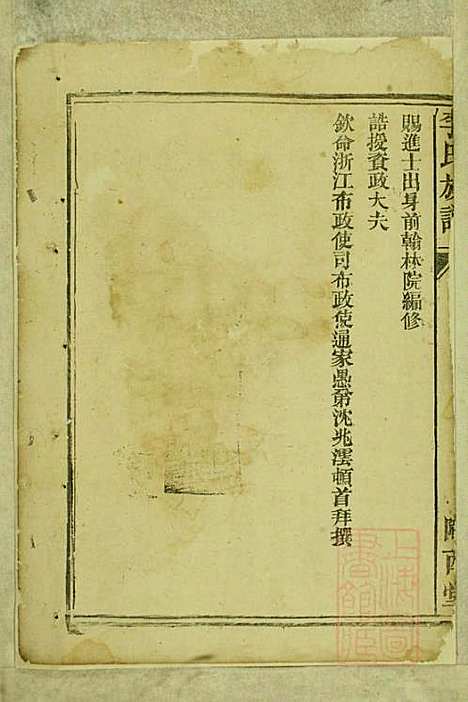 李氏族譜
隴西堂
賜進士出身前翰林院編修
誥授資政大夫
欽命浙江布政使司布政使通家愚弟沈兆澐頓首拜撰
上海圖書館藏